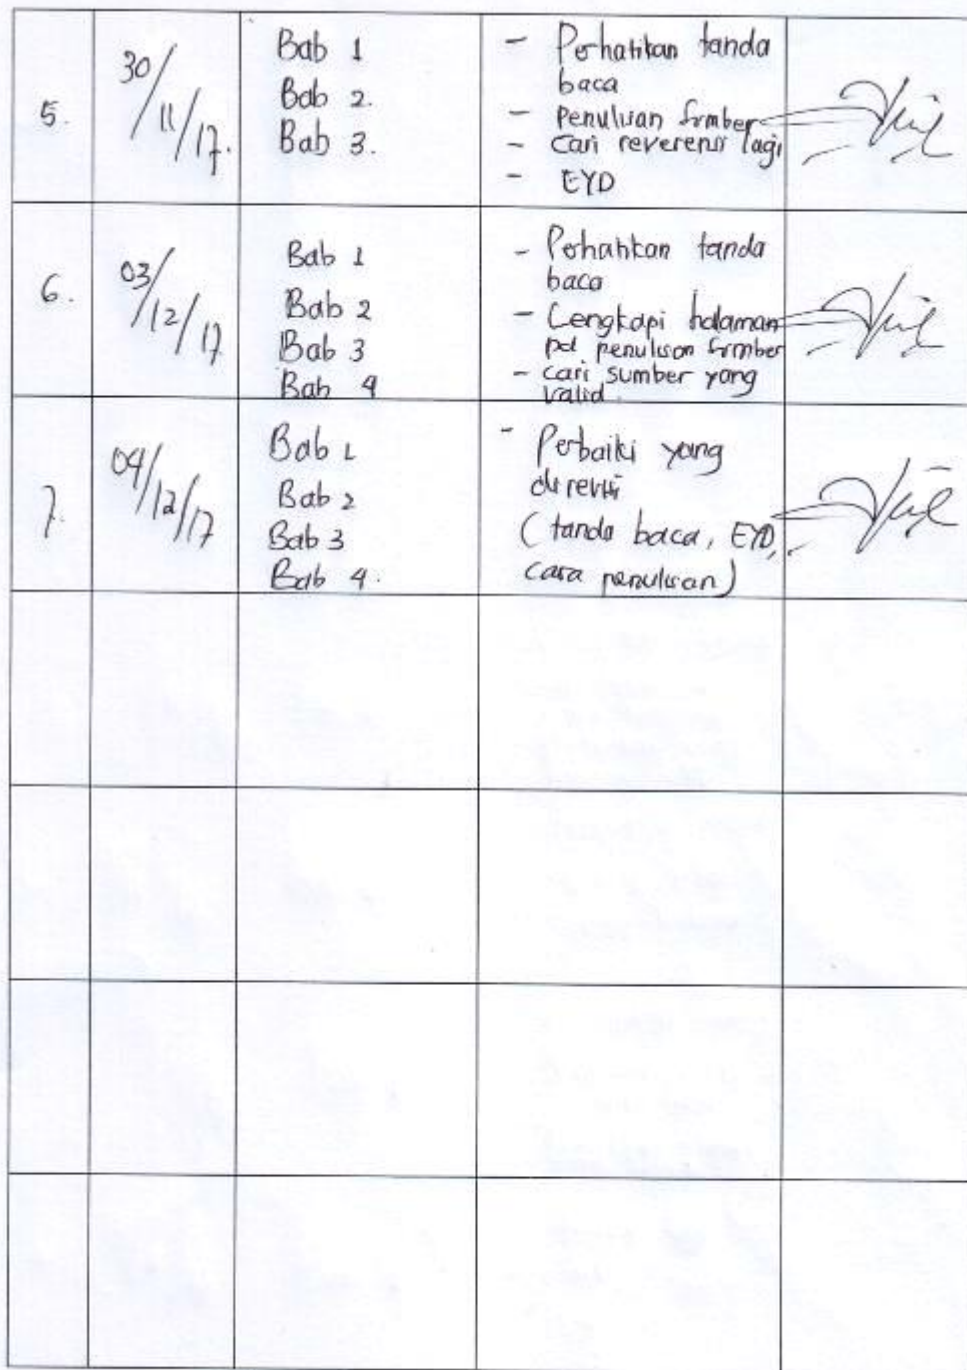 5.
30/11/17.
Bab 1
Bab 2.
Bab 3.
- Perhatikan tanda
baca
- Penulisan sumber
- Cari reverensi lagi
- EYD
6.
03/12/17
Bab 1
Bab 2
Bab 3
Bab 4
- Perhatikan tanda
baca
- Lengkapi halaman
pd penulisan sumber
- cari sumber yang
valid.
7.
04/12/17
Bab 1
Bab 2
Bab 3
Bab 4.
- Perbaiki yang
direvisi
(tanda baca, EYD,
cara penulisan)